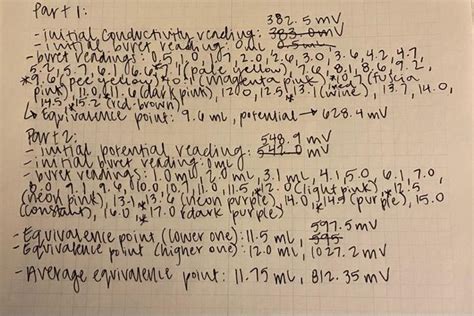 Part 1:
382.5 mV
- initial conductivity reading: 383.0 mV
- initial buret reading: 0 ml 0.5 ml
- buret readings: 0.5, 1.0, 1.7, 2.0, 2.6, 3.0, 3.6, 4.2, 4.7,
5.2, 5.7, 6.1, 6.6, 7.1 (pale yellow), 7.6, 8.1, 8.6, 9.2,
*9.6 (pee yellow), 10.1 (magenta pink), *10.7 (fuscia
pink), 11.0, 11.6 (dark pink), 12.0, 12.5, *13.1 (wine red), 13.7, 14.0,
14.5, *15.2 (red-brown)
↳ equivalence point: 9.6 ml, potential → 628.4 mV
Part 2:
548.9 mV
- initial potential reading: mV
- initial buret reading: 0 ml
- buret readings: 1.0 ml, 2.0 ml, 3.1 ml, 4.1, 5.0, 6.1, 7.0,
8.0, 9.1, 9.6, 10.0, 10.7, 11.0, 11.5, *12.0 (light pink), *12.5
(neon pink), 13.1, *13.6 (neon purple), 14.0, *14.5 (purple), 15.0
(constant), 16.0, *17.0 (dark purple)
597.5 mV
- Equivalence point (lower one): 11.5 ml, 595
- Equivalence point (higher one): 12.0 ml, 1027.2 mV
- Average equivalence point: 11.75 ml, 812.35 mV